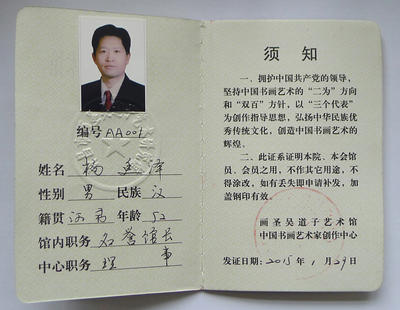 编号 AA001
姓名 杨廷泽
性别 男 民族 汉
籍贯 河南 年龄 52
馆内职务 名誉馆长
中心职务 理事
须知
一、拥护中国共产党的领导,
坚持中国书画艺术的“二为”方向
和“双百”方针,以“三个代表”
为创作指导思想,弘扬中华民族优
秀传统文化,创造中国书画艺术的
辉煌。
二、此证系证明本院、本会馆
员、会员之用,不作其它用途,不
得涂改,如有丢失即申请补发,加
盖钢印有效。
画圣吴道子艺术馆
中国书画艺术家创作中心
发证日期:2015年1月29日